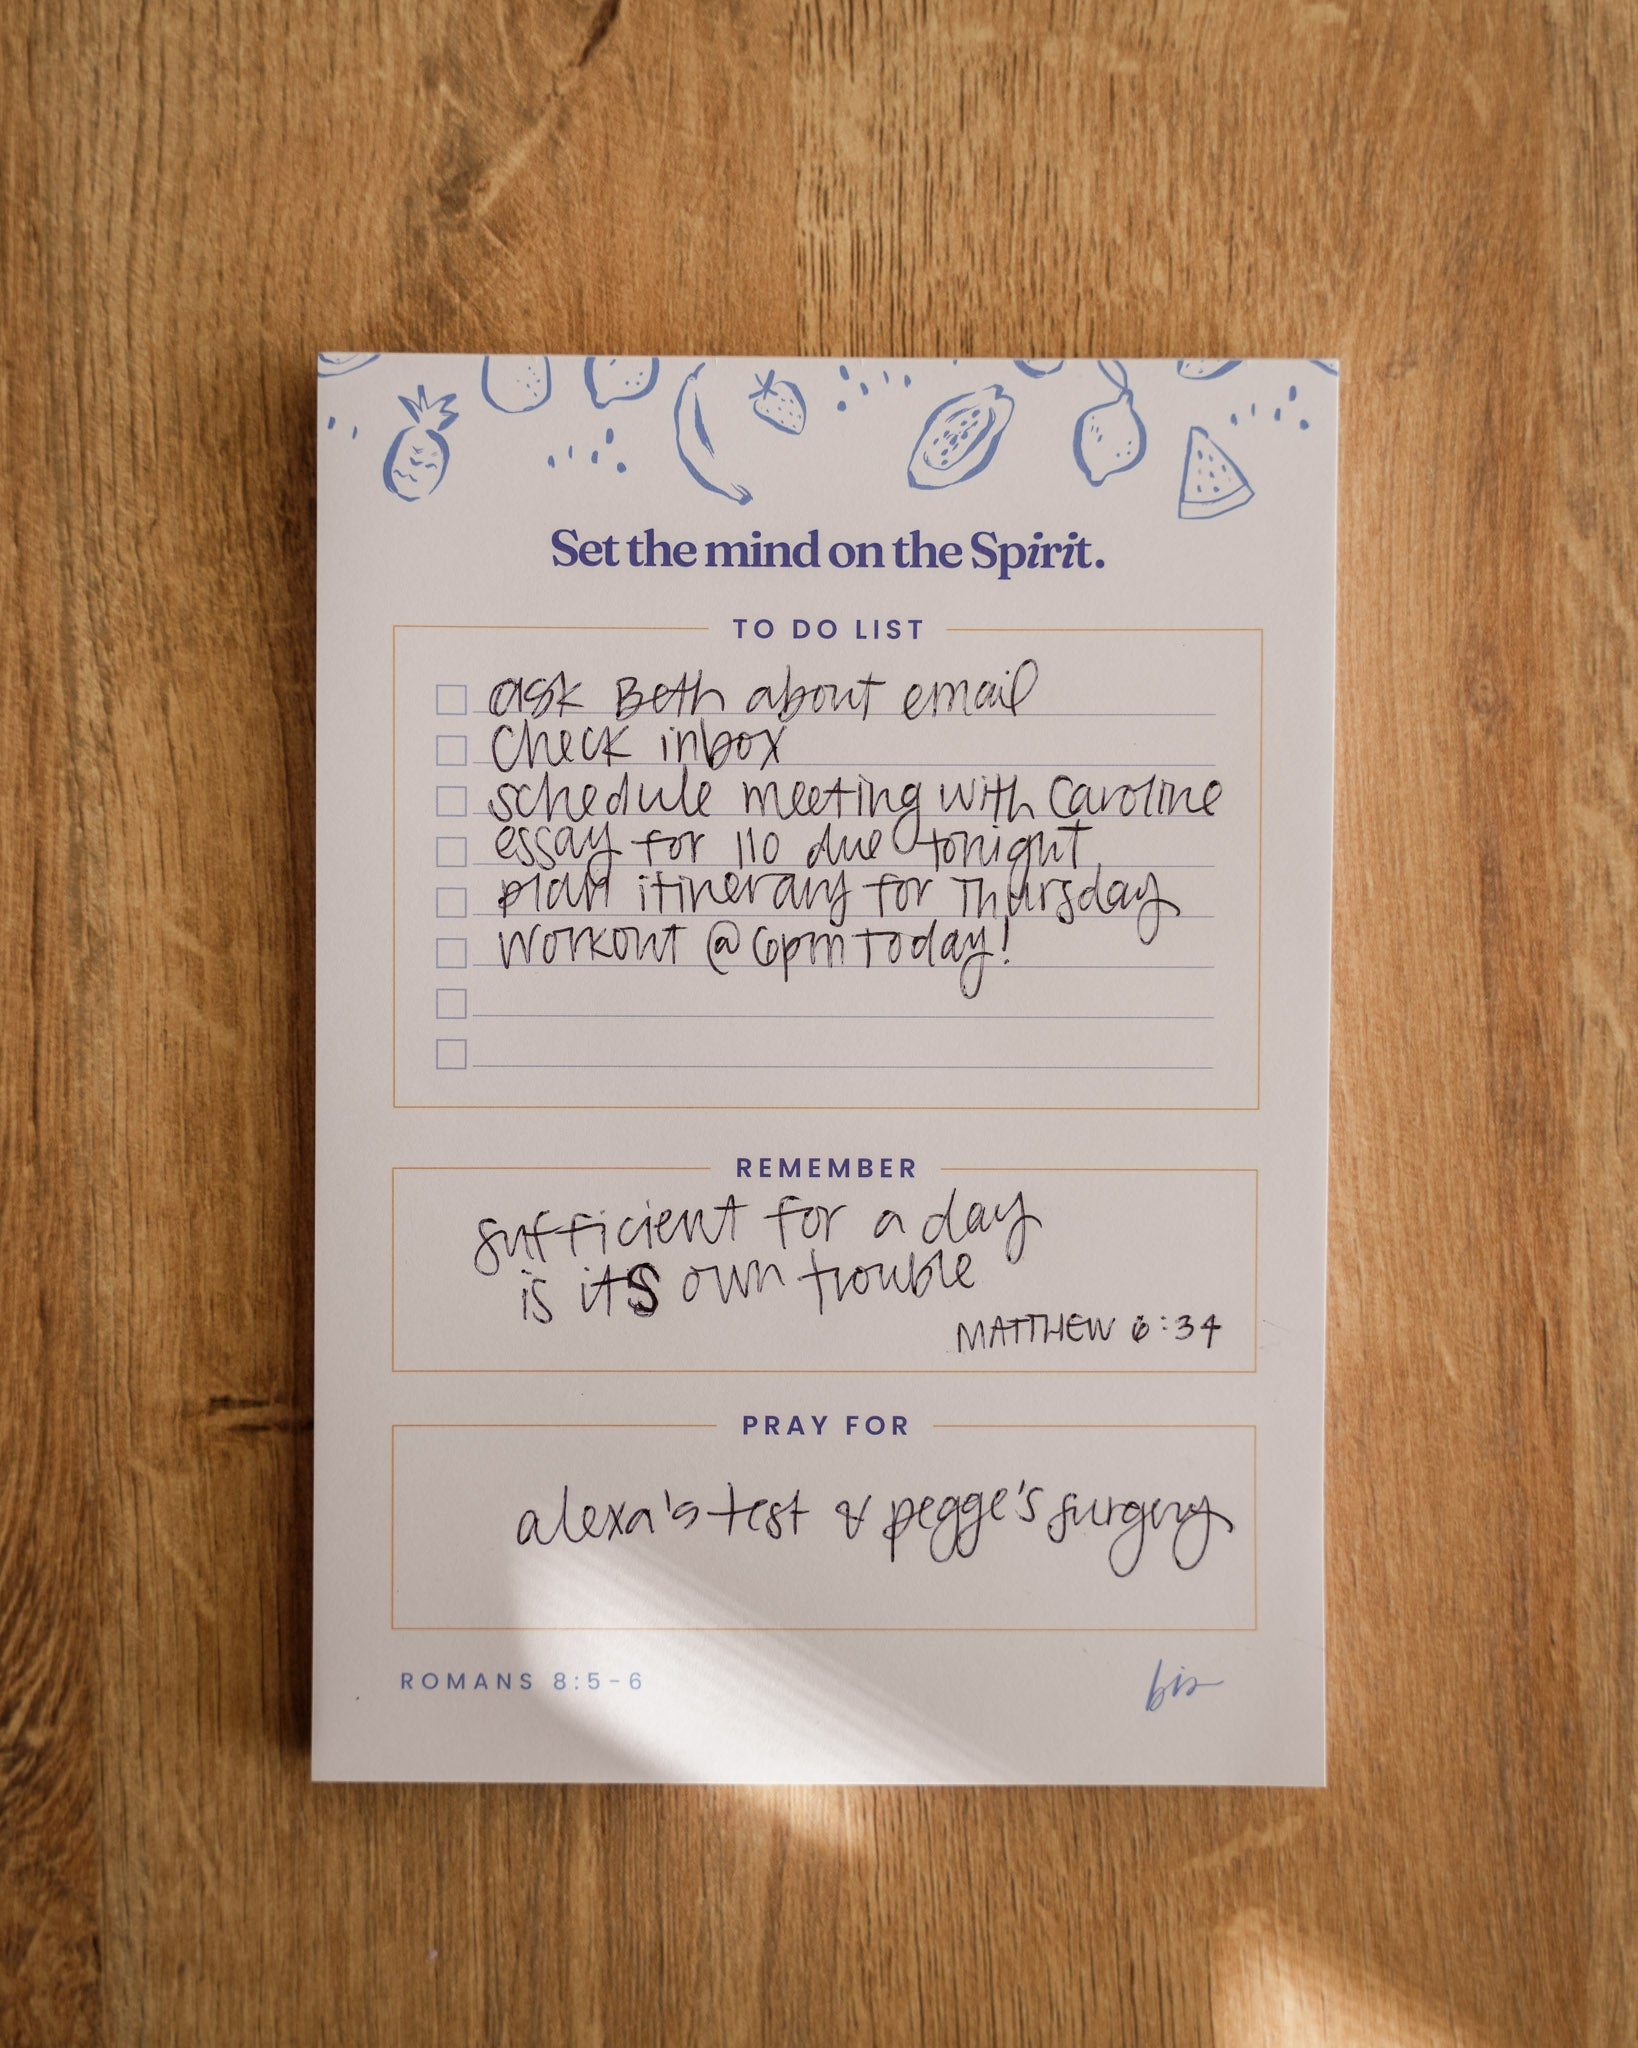 Set the mind on the Spirit.
TO DO LIST
ask Beth about email
check inbox
schedule meeting with Caroline
essay for 110 due tonight
plan itinerary for Thursday
workout @ 6pm today!
REMEMBER
sufficient for a day
is its own trouble
MATTHEW 6:34
PRAY FOR
alexa's test & pegge's surgery
ROMANS 8:5-6